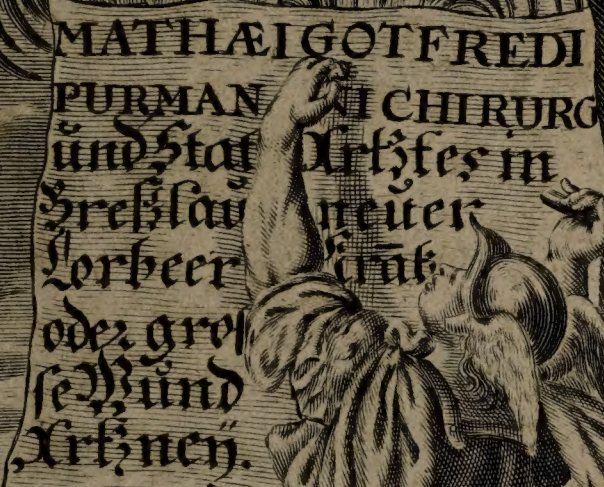 MATHÆI GOTFREDI
PURMANNI CHIRURG
ůnd Stat Artztes in
Breßlaů neůer
Lorbeer Krātz
oder gros
se Wůnd
Artzneÿ.